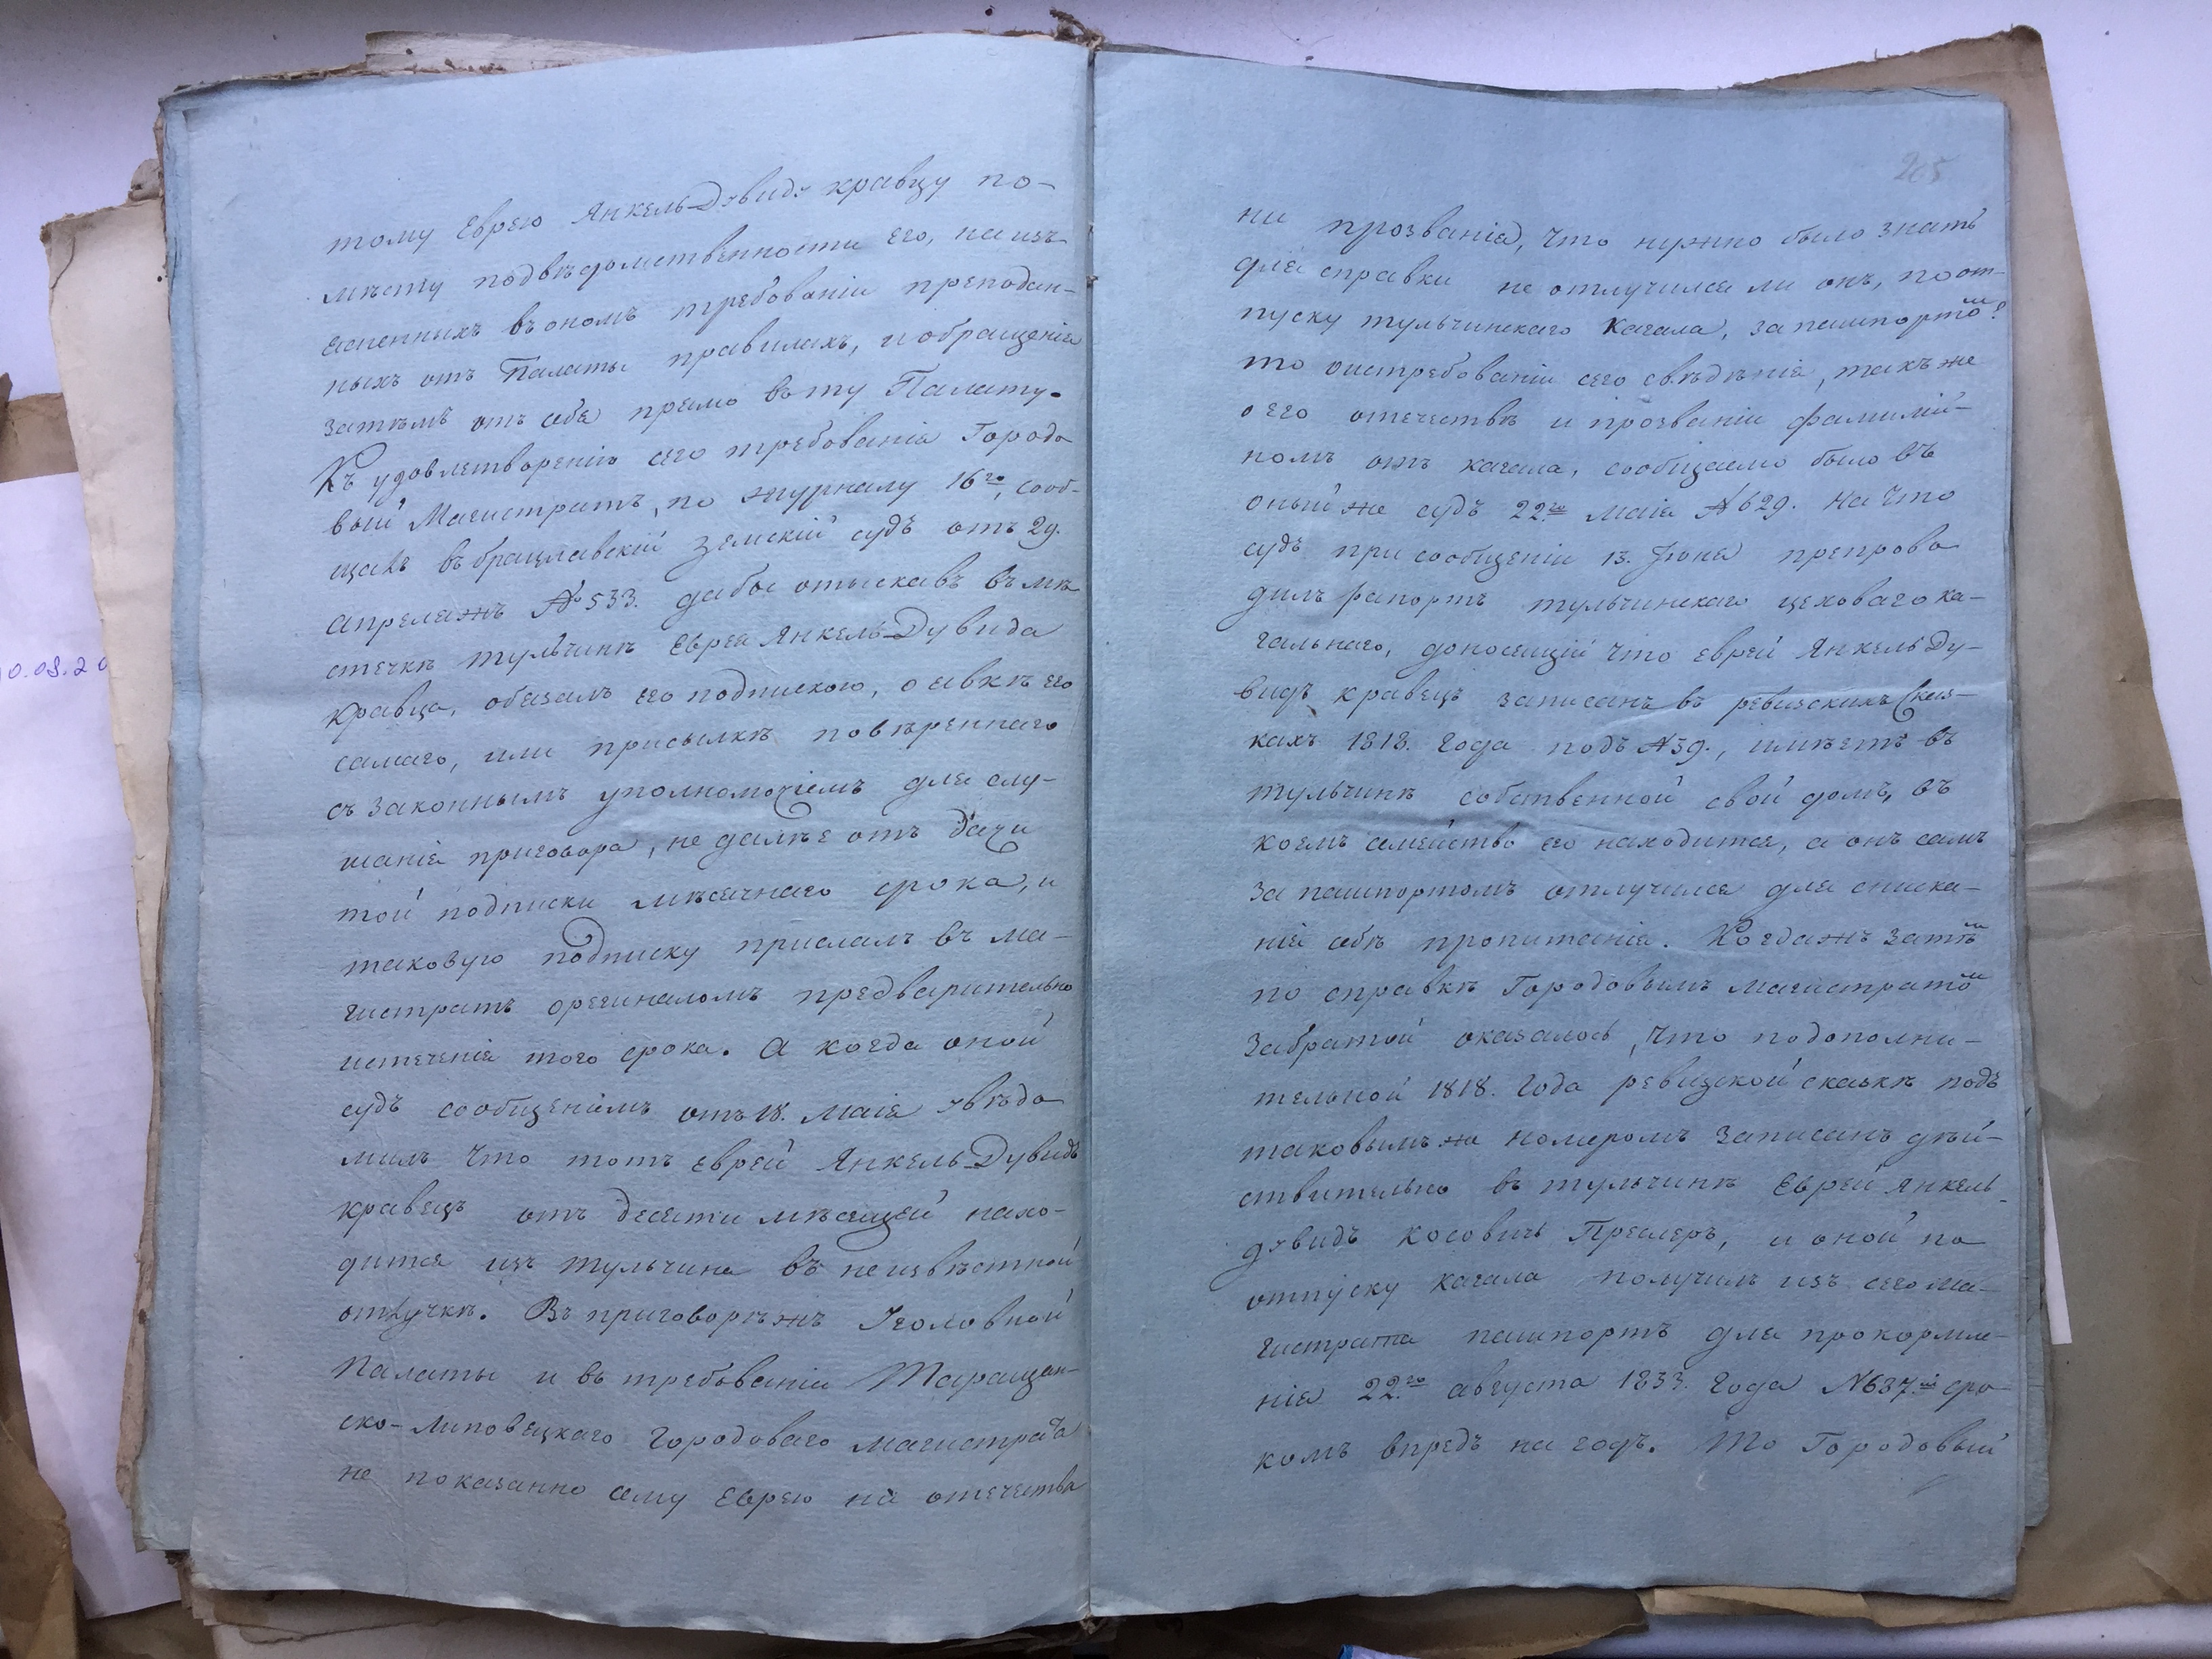 тому Еврею Янкель Дувиду кравцу по-
мѣсту подвѣдомственности его, на изъ-
ясненныхъ въ ономъ требованіи преподан-
ныхъ отъ Палаты правилахъ, и обращенія
затѣмъ отъ себя прямо въ ту Палату.
Къ удовлетворенію сего требованія Городо
вый Магистратъ, по журналу 16го, сооб-
щалъ въ брацлавскій земскій судъ отъ 29.
апреляжъ № 533. дабы отыскавъ въ мѣ
стечкѣ тульчинѣ Еврея Янкель Дувида
кравца, обязалъ его подпискою, о явкѣ его
самаго, или присылкѣ повѣреннаго
съ законнымъ уполномочіемъ для слу-
шанія приговора, не далѣе отъ дачи
той подписки мѣсячнаго срока, и
таковую подписку прислалъ въ ма-
гистратъ оregиналомъ предварительно
истеченія того срока. А когда оной
судъ сообщеніемъ отъ 18. маія увѣдо
милъ что тотъ еврей Янкель Дувидъ
кравецъ отъ десяти мѣсяцей нахо-
дится изъ тульчина въ неизвѣстной
отлучкѣ. Въ приговорѣжъ Уголовной
Палаты и въ требованіи Таращан-
ско-Липовецкаго Городоваго магистрата
не показанно сему Еврею ни отечества
205
ни прозванія, что нужно было знать
для справки не отлучился ли онъ, по от-
пуску тульчинскаго Кагала, за пашпортомъ?
то о истребованіи сего свѣдѣнія, такъ же
о его отечествѣ и прозваніи фамилій-
номъ отъ кагала, сообщаемо было въ
оный же судъ 22го маія № 629. На что
судъ при сообщеніи 13. Іюня препрово
дилъ рапортъ тульчинскаго цеховаго ка-
гальнаго, доносящій что еврей Янкель Ду-
видъ кравецъ записанъ въ ревизскихъ Сказ-
кахъ 1818. года подъ № 39., имѣетъ въ
тульчинѣ собственной свой домъ, въ
коемъ семейство его находится, а онъ самъ
за пашпортомъ отлучился для сниска-
нія себѣ пропитанія. Когдажъ затѣмъ
по справкѣ Городовымъ магистратомъ
забратой оказалось, что по дополни-
тельной 1818. года ревизской сказкѣ подъ
таковымъ же номеромъ записанъ дѣй-
ствительно въ тульчинѣ Еврей Янкель-
дувидъ Косовичъ Преслеръ, и оной по
отпуску кагала получилъ изъ сего ма-
гистрата пашпортъ для прокормле-
нія 22го августа 1833. года № 637.й сро-
комъ впредь на годъ. То Городовый